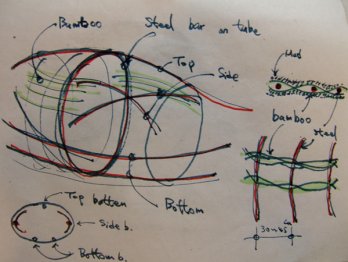 Bamboo
Steel bar or tube
Top
Side
Mud
bamboo
steel
Bottom
Top batten
Side b.
Bottom b.